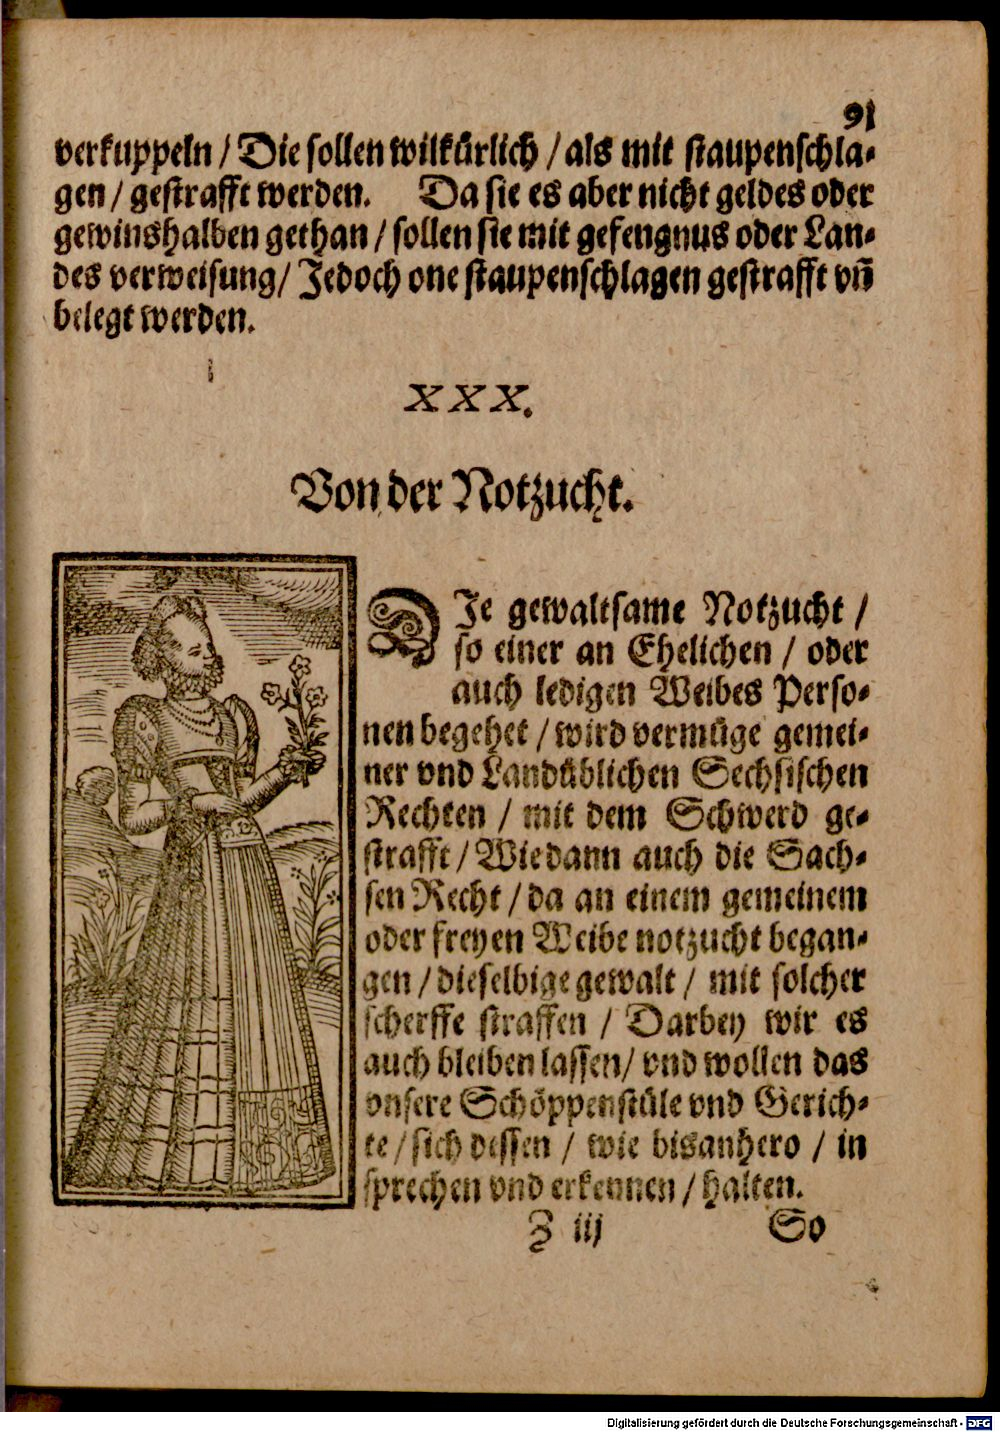 91
verkuppeln / Die sollen wilkürlich / als mit staupenschla-
gen / gestrafft werden. Da sie es aber nicht geldes oder
gewinshalben gethan / sollen sie mit gefengnus oder Lan-
des verweisung / Jedoch one staupenschlagen gestrafft vn̄
belegt werden.
XXX.
Von der Notzucht.
DIe gewaltsame Notzucht /
so einer an Ehelichen / oder
auch ledigen Weibes Perso-
nen begehet / wird vermüge gemei-
ner vnd Landüblichen Sechsischen
Rechten / mit dem Schwerd ge-
strafft / Wie dann auch die Sach-
sen Recht / da an einem gemeinem
oder freyen Weibe notzucht began-
gen / dieselbige gewalt / mit solcher
scherffe straffen / Darbey wir es
auch bleiben lassen / vnd wollen das
vnsere Schöppenstüle vnd Gerich-
te / sich dessen / wie bisanhero / in
sprechen vnd erkennen / halten.
Z iij So
Digitalisierung gefördert durch die Deutsche Forschungsgemeinschaft - DFG